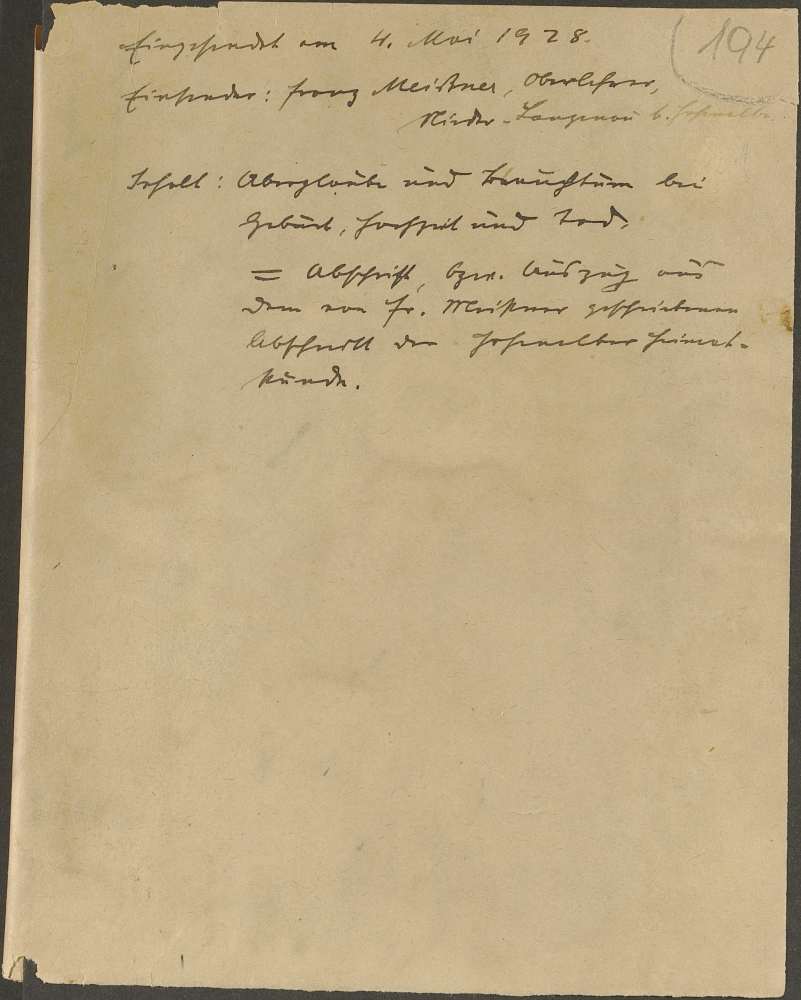 194
Eingesendet am 4. Mai 1928.
Einsender: Franz Meißner, Oberlehrer,
Nieder-Langenau b. Hohenelbe.
Inhalt: Aberglaube und Brauchtum bei
Geburt, Hochzeit und Tod.
= Abschrift, bzw. Auszug aus
dem von Fr. Meißner geschriebenen
Abschnitt der Hohenelber Heimat-
kunde.